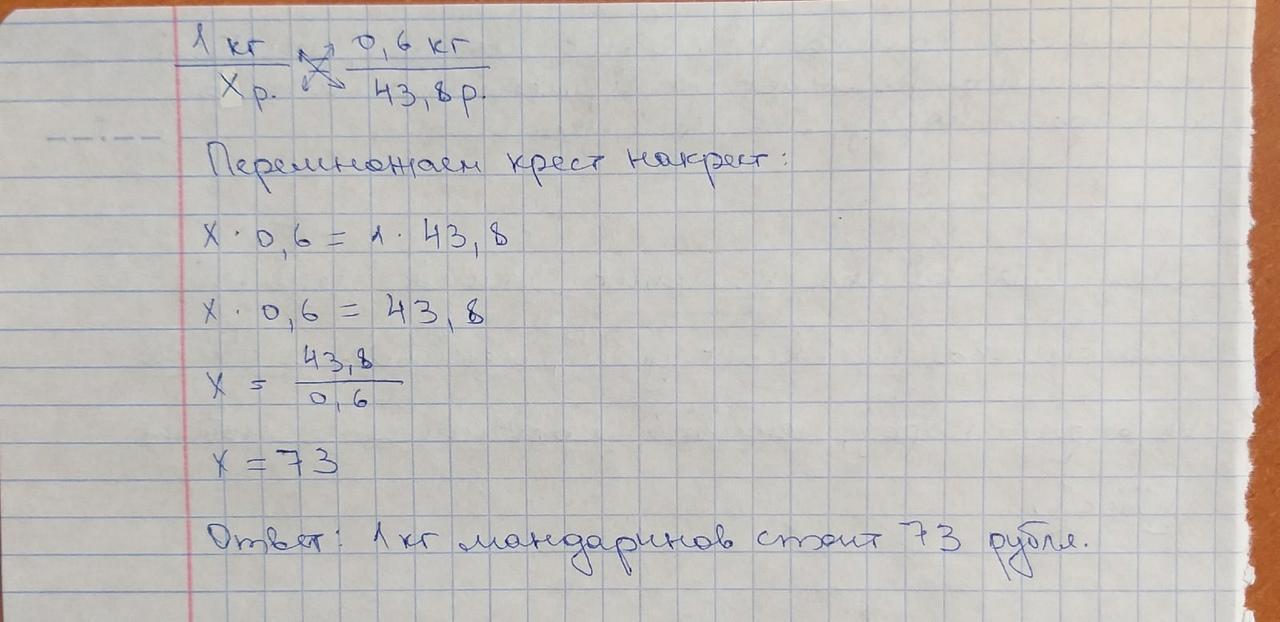 1 кг 0,6 кг
X р. 43,8 р.
Перемножаем крест накрест:
X · 0,6 = 1 · 43,8
X · 0,6 = 43,8
X = 43,8
0,6
X = 73
Ответ: 1 кг мандаринов стоит 73 рубля.